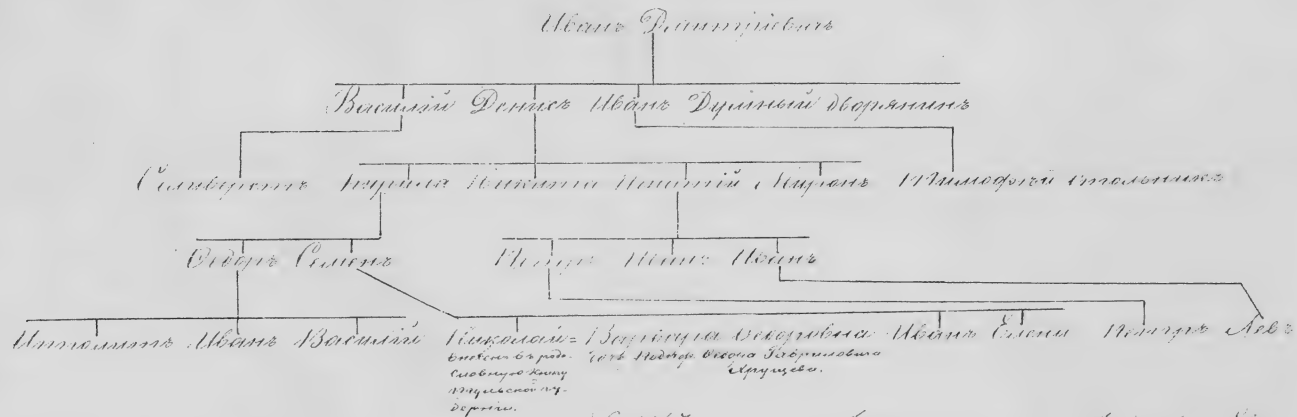 Иванъ Дмитріевичъ
Василій Денисъ Иванъ Думный дворянинъ
Селиверстъ Кирила Никита Игнатій Миронъ Тимофей стольникъ
Ѳедоръ Семенъ Петръ Иванъ Иванъ
Ипполитъ Иванъ Василій Николай = Ѳедоровна Иванъ Елена Петръ Левъ
внесенъ въ родо-
словную книгу
Тульской гу-
берніи.
Ѳедора Гавриловича
Хрущева.